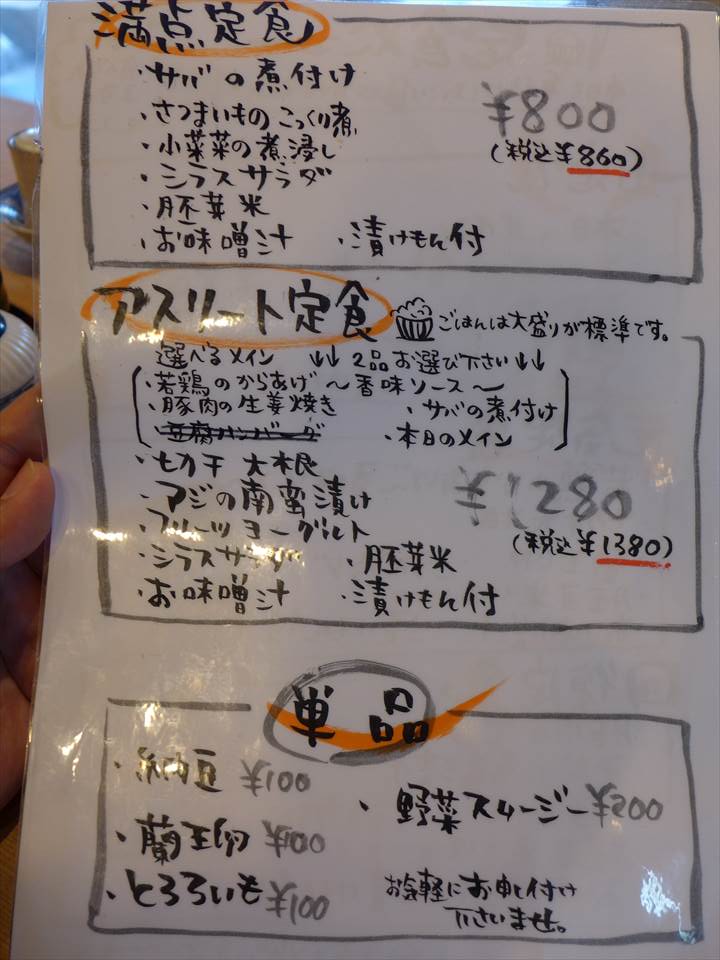 満点定食
・サバの煮付け
・さつまいものこっくり煮
・小菜菜の煮浸し
・シラスサラダ
・胚芽米
・お味噌汁 ・漬けもん付
¥800
(税込¥860)
アスリート定食 ごはんは大盛りが標準です。
選べるメイン ↓↓2品お選び下さい↓↓
・若鶏のからあげ〜香味ソース〜
・豚肉の生姜焼き ・サバの煮付け
・豆腐ハンバーグ ・本日のメイン
・切干大根
・アジの南蛮漬け
・フルーツヨーグルト
・シラスサラダ ・胚芽米
・お味噌汁 ・漬けもん付
¥1280
(税込¥1380)
単品
・納豆 ¥100
・蘭王卵 ¥100
・とろろいも ¥100
・野菜スムージー ¥200
お気軽にお申し付け
下さいませ。